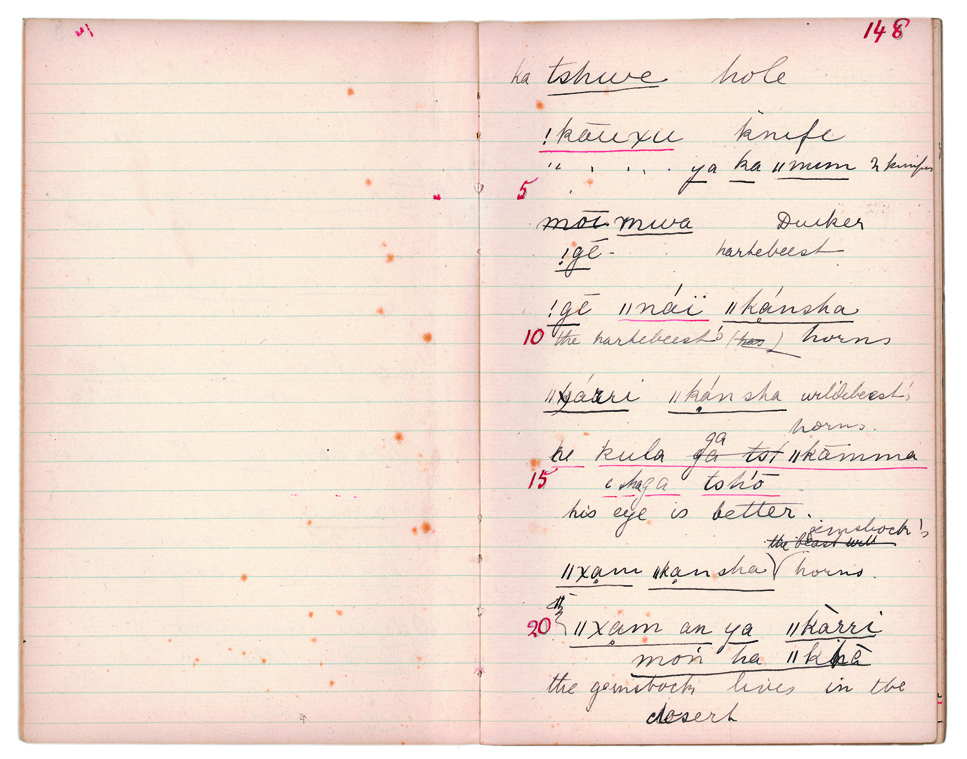 148
ha tshwe hole
!kāuxu knife
" . . . . ya ka ǁmum 2 knifes
5
mōi muva Duiker
!gē- hartebeest
!gē ǁnáï ǁkạ́nsha
10 the hartebeest's (has) horns
ǁxárri ǁkạ́nsha wildebeest's
horns.
ga
he kula ga tst ǁkāmma
15 i shaga tshʼō
his eye is better.
gemsbock's
the beast will
ǁxạm ǁkạnsha horns.
20 ǁxạm an ya ǁkàrri
moń ha ǁkhā
the gemsbock lives in the
desert